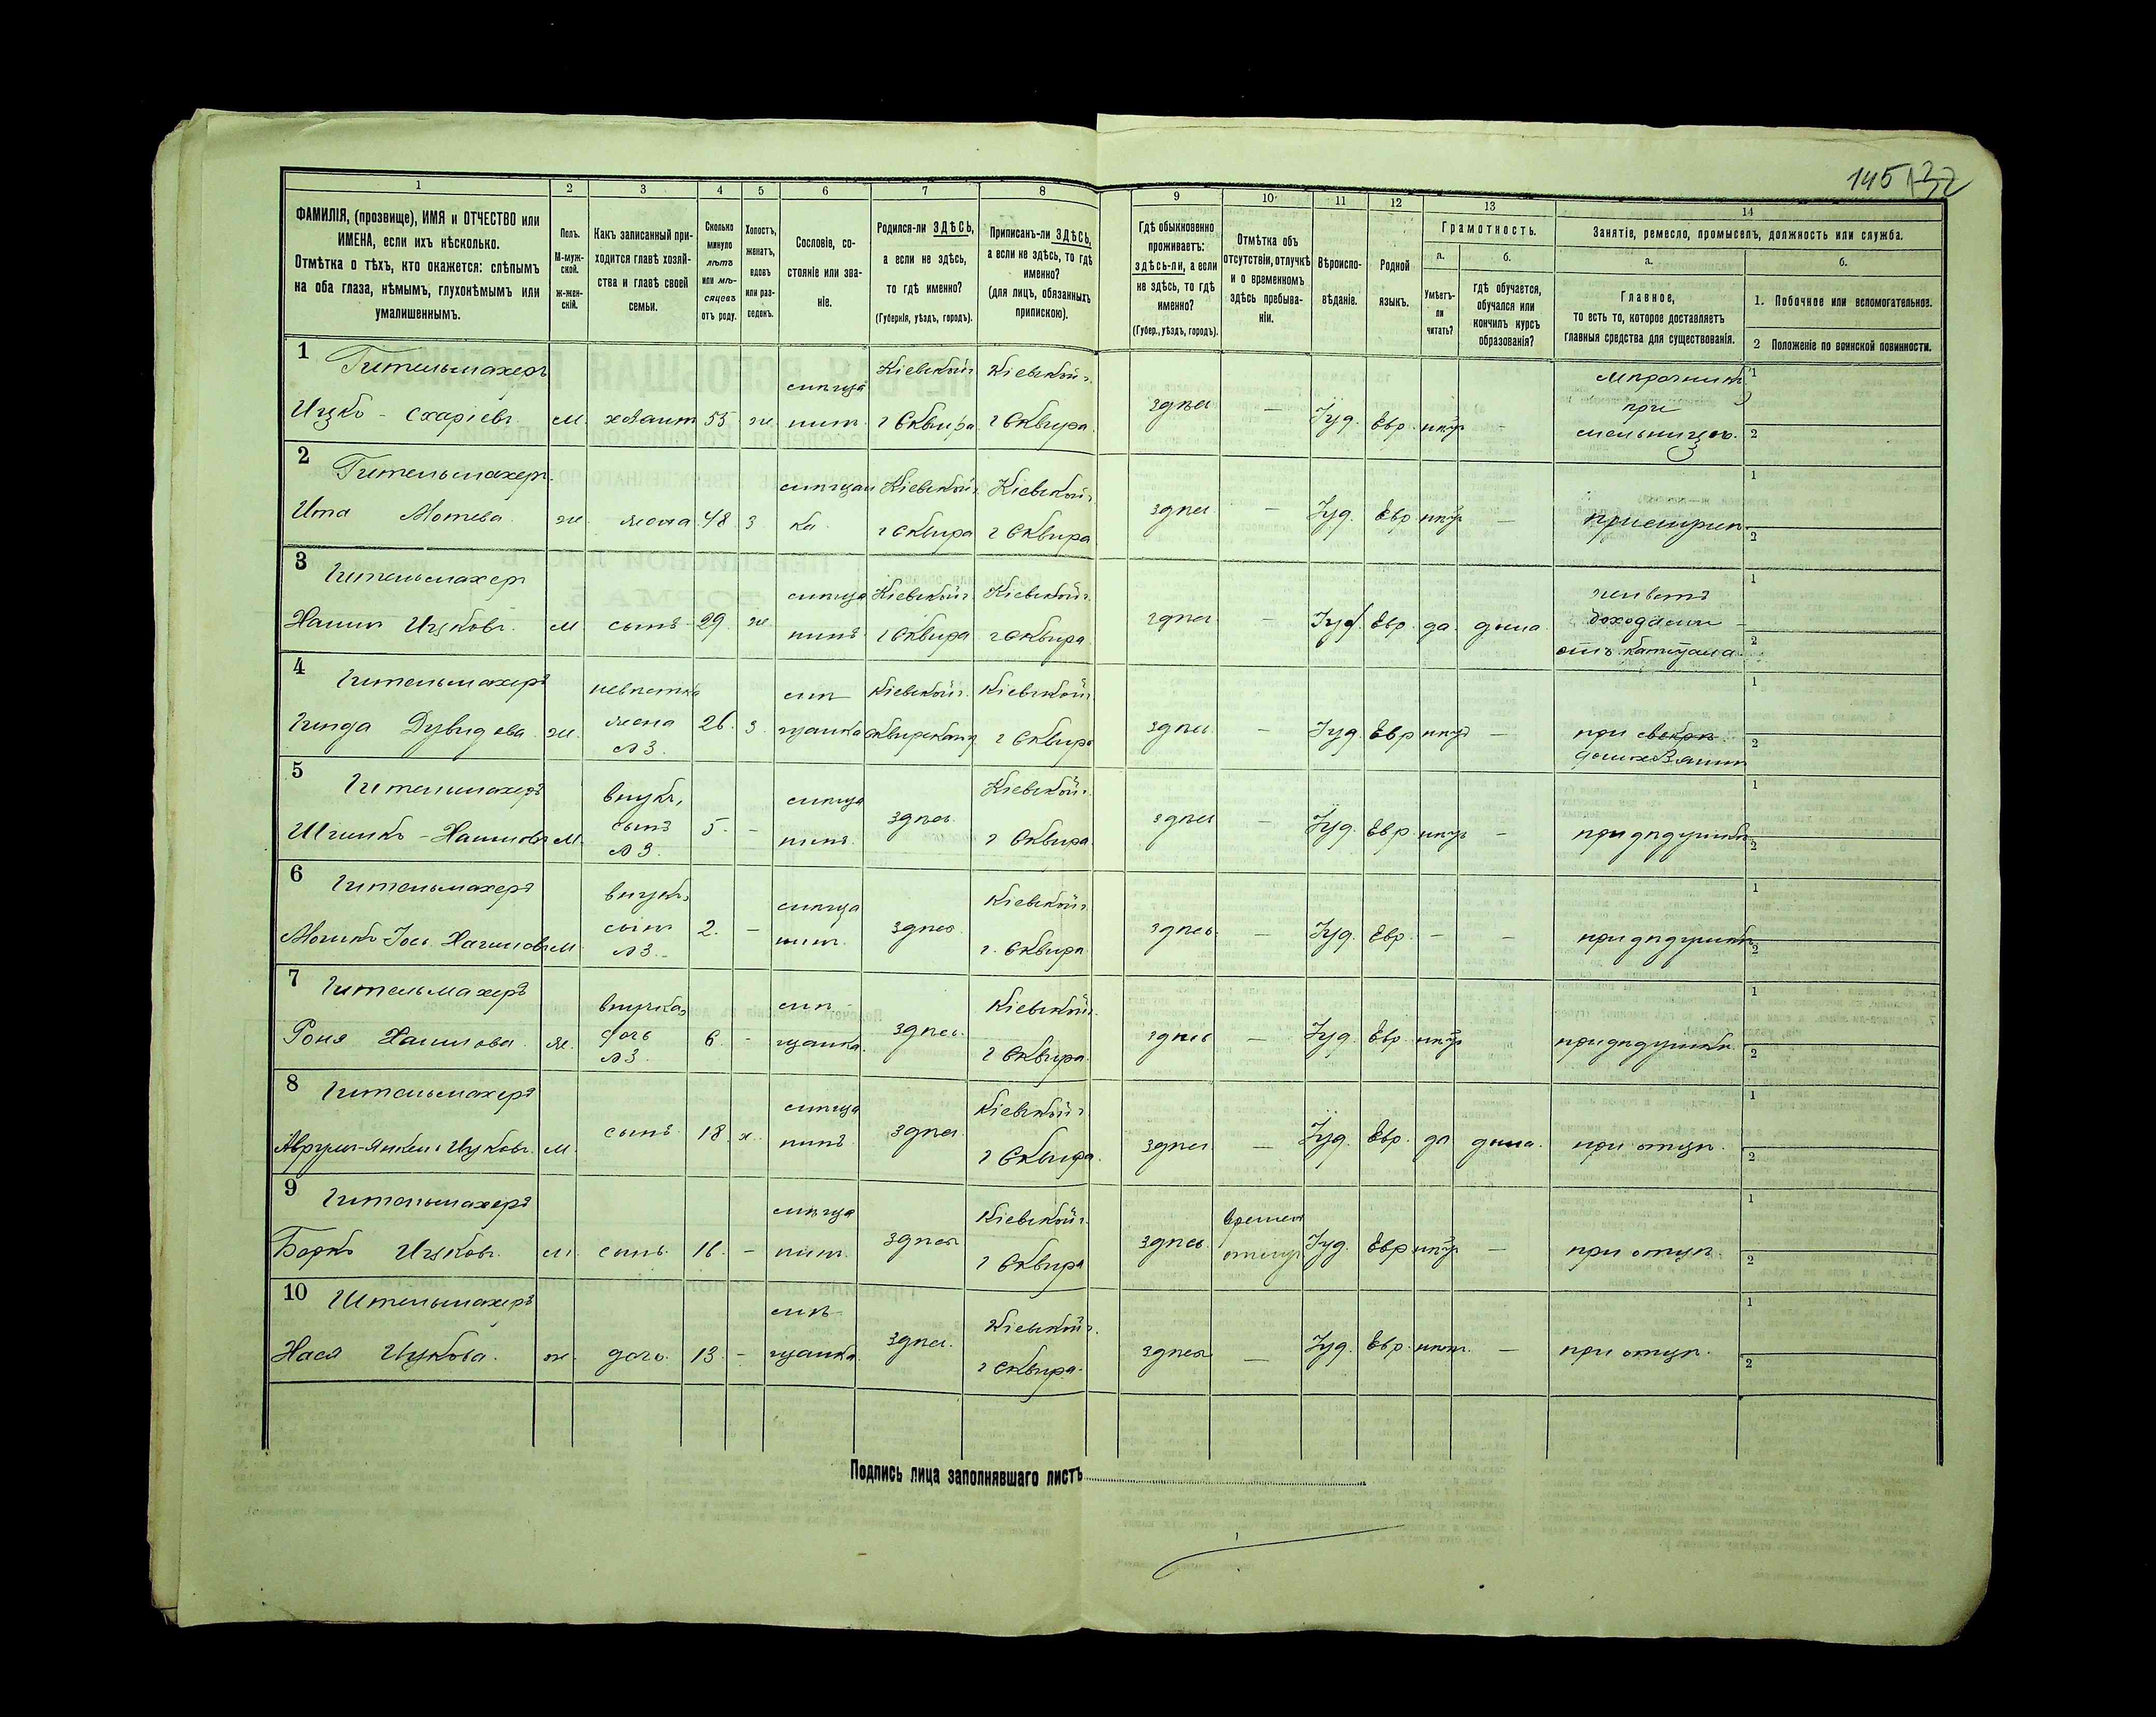 145 132
1 2 3 4 5 6 7 8 9 10 11 12 13 14
ФАМИЛІЯ, (прозвище), ИМЯ и ОТЧЕСТВО или
ИМЕНА, если ихъ нѣсколько.
Отмѣтка о тѣхъ, кто окажется: слѣпымъ
на оба глаза, нѣмымъ, глухонѣмымъ или
умалишеннымъ.
Полъ.
М-муж-
ской.
ж-жен-
скій.
Какъ записанный при-
ходится главѣ хозяй-
ства и главѣ своей
семьи.
Сколько
минуло
лѣтъ
или мѣ-
сяцевъ
отъ роду.
Холостъ,
женатъ,
вдовъ
или раз-
веденъ.
Сословіе, со-
стояніе или зва-
ніе.
Родился-ли ЗДѢСЬ,
а если не здѣсь,
то гдѣ именно?
(Губернія, уѣздъ, городъ).
Приписанъ-ли ЗДѢСЬ,
а если не здѣсь, то гдѣ
именно?
(для лицъ, обязанныхъ
припискою).
Гдѣ обыкновенно
проживаетъ:
здѣсь-ли, а если
не здѣсь, то гдѣ
именно?
(Губер., уѣздъ, городъ).
Отмѣтка объ
отсутствіи, отлучкѣ
и о временномъ
здѣсь пребыва-
ніи.
Вѣроиспо-
вѣданіе.
Родной
языкъ.
Грамотность.
а.
Умѣетъ-
ли
читать?
б.
гдѣ обучается,
обучался или
кончилъ курсъ
образованія?
Занятіе, ремесло, промыселъ, должность или служба.
а.
Главное,
то есть то, которое доставляетъ
главныя средства для существованія.
б.
1. Побочное или вспомогательное.
2 Положеніе по воинской повинности.
1 Гительмахеръ мѣща Кіевской г. Кіевской г. 1
Ицко - Схаріевъ м. хозяинъ 55 ж. нинъ г Сквира г Сквира. здѣсь — Іуд. Евр. нѣтъ - при
мельницѣ. 2
2 Гительмахеръ мѣщан Кіевской г. Кіевской г. 1
Ита Мотева ж. жена 48 з ка г Сквира г Сквира здѣсь — Іуд. Евр. нѣтъ — при мужѣ 2
3 Гительмахер мѣща Кіевской г. Кіевской г. живетъ 1
Хаимъ Ицковъ. м. сынъ 29. ж. нинъ г Сквира г Сквира. здѣсь — Іуд. Евр. да. дома. доходами
отъ капитала. 2
4 Гительмахеръ невѣстка мѣ Кіевской г. Кіевской г. 1
Гинда Дувидова ж. жена 26. з. щанка г Сквира здѣсь — Іуд. Евр нѣтъ — при
№ 3. 2
5 Гительмахеръ внукъ, мѣща Кіевской г. 1
Шимко - Хаимовъ м. сынъ 5. - нинъ. здѣсь. г Сквира. здѣсь — Іуд. Евр. нѣтъ — при дѣдушкѣ 2
№ 3.
6 Гительмахеръ внукъ, мѣща Кіевской г. 1
Мошко Іось Хаимовъ м. сынъ 2. - нинъ. здѣсь г. Сквира здѣсь. — Іуд. Евр. - - при дѣдушкѣ 2
№ 3.
7 Гительмахеръ внучка, мѣ Кіевской г. 1
Роня Хаимова ж. дочь 6. - щанка. здѣсь. г Сквира. здѣсь — Іуд. Евр. нѣтъ при дѣдушкѣ 2
№ 3.
8 Гительмахеръ мѣща Кіевской г. 1
Аврумъ-Янкель Ицковъ. м. сынъ 18 х. нинъ здѣсь г Сквира. здѣсь — Іуд. Евр. да дома. при отцѣ. 2
9 Гительмахеръ мѣща Кіевской г. времен 1
Борко Ицковъ. м. сынъ 16. - нинъ. здѣсь г Сквира здѣсь. отлуч Іуд. Евр нѣтъ — при отцѣ. 2
10 Гительмахеръ мѣ- Кіевской г. 1
Хася Ицкова. ж. дочь. 13. - щанка. здѣсь. г Сквира. здѣсь — Іуд. Евр. нѣтъ. — при отцѣ. 2
Подпись лица заполнявшаго листъ